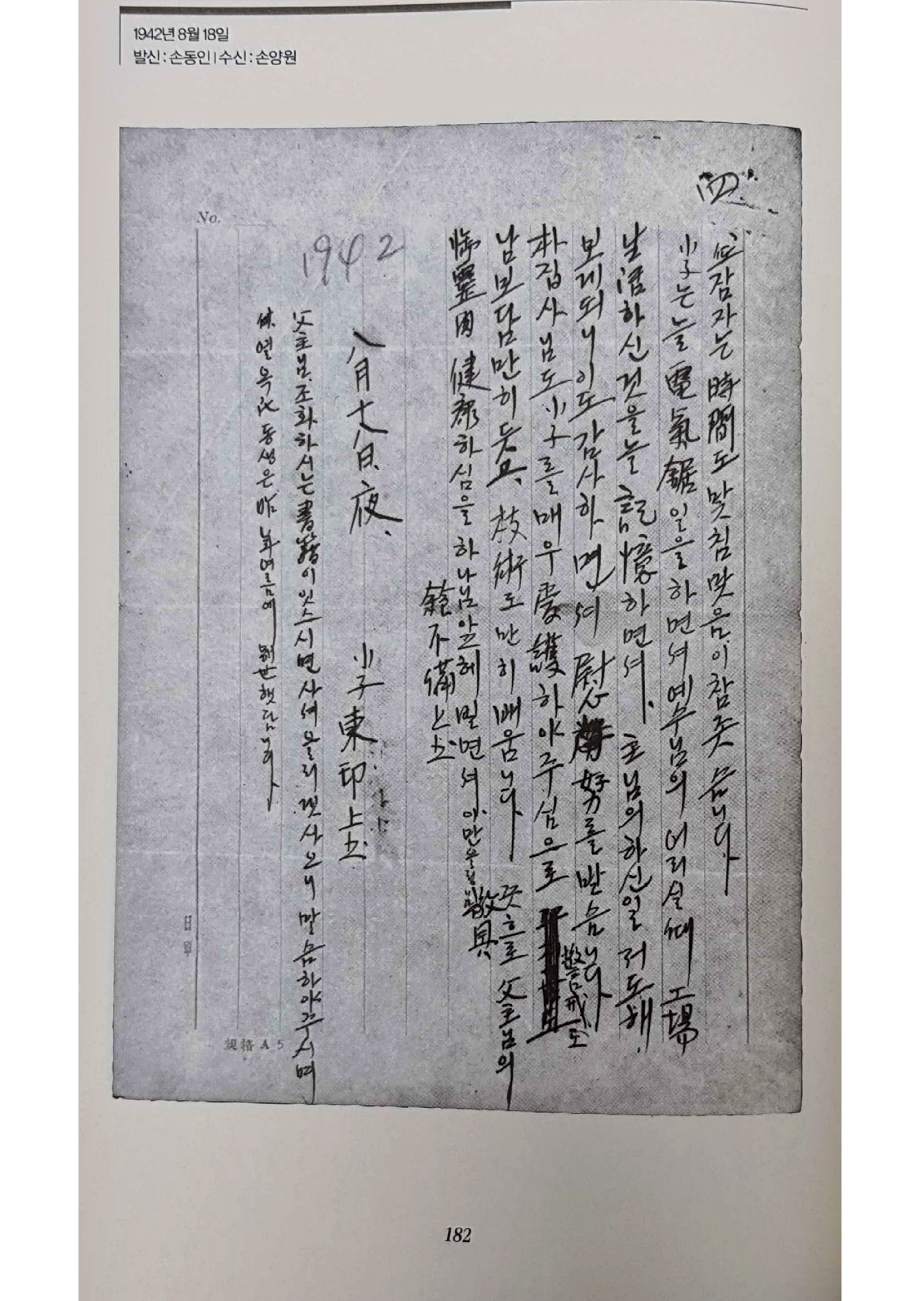 1942년 8월 18일
발신 : 손동인 | 수신 : 손양원
四
No.
잠자는 時間도 맞침맞음이 참 좃슴니다
小子는 늘 電氣鋸 일을 하면셔 예수님의 어리실때 工場
生活하신 것을 늘 記憶하면셔. 主님의 하신 일 저도 해
보게 되니 이도 감사하면셔 慰勞를 받슴니다
朴집사님도 小子를 매우 愛護하야 주심으로 警戒도
남보담 만히 듯고, 技術도 만히 배움니다 끗흐로 父主님의
靈肉 健康하심을 하나님 앞헤 빌면셔 이만 敬具
餘不備上書
1942
八月十八日, 夜,
小子 東印 上書
父主님, 조화하시는 書籍이 잇스시면 사셔 올리겟사오니 말슴하야 주시며
동생은 昨年 여름에 햇담니다
規格 A 5
182